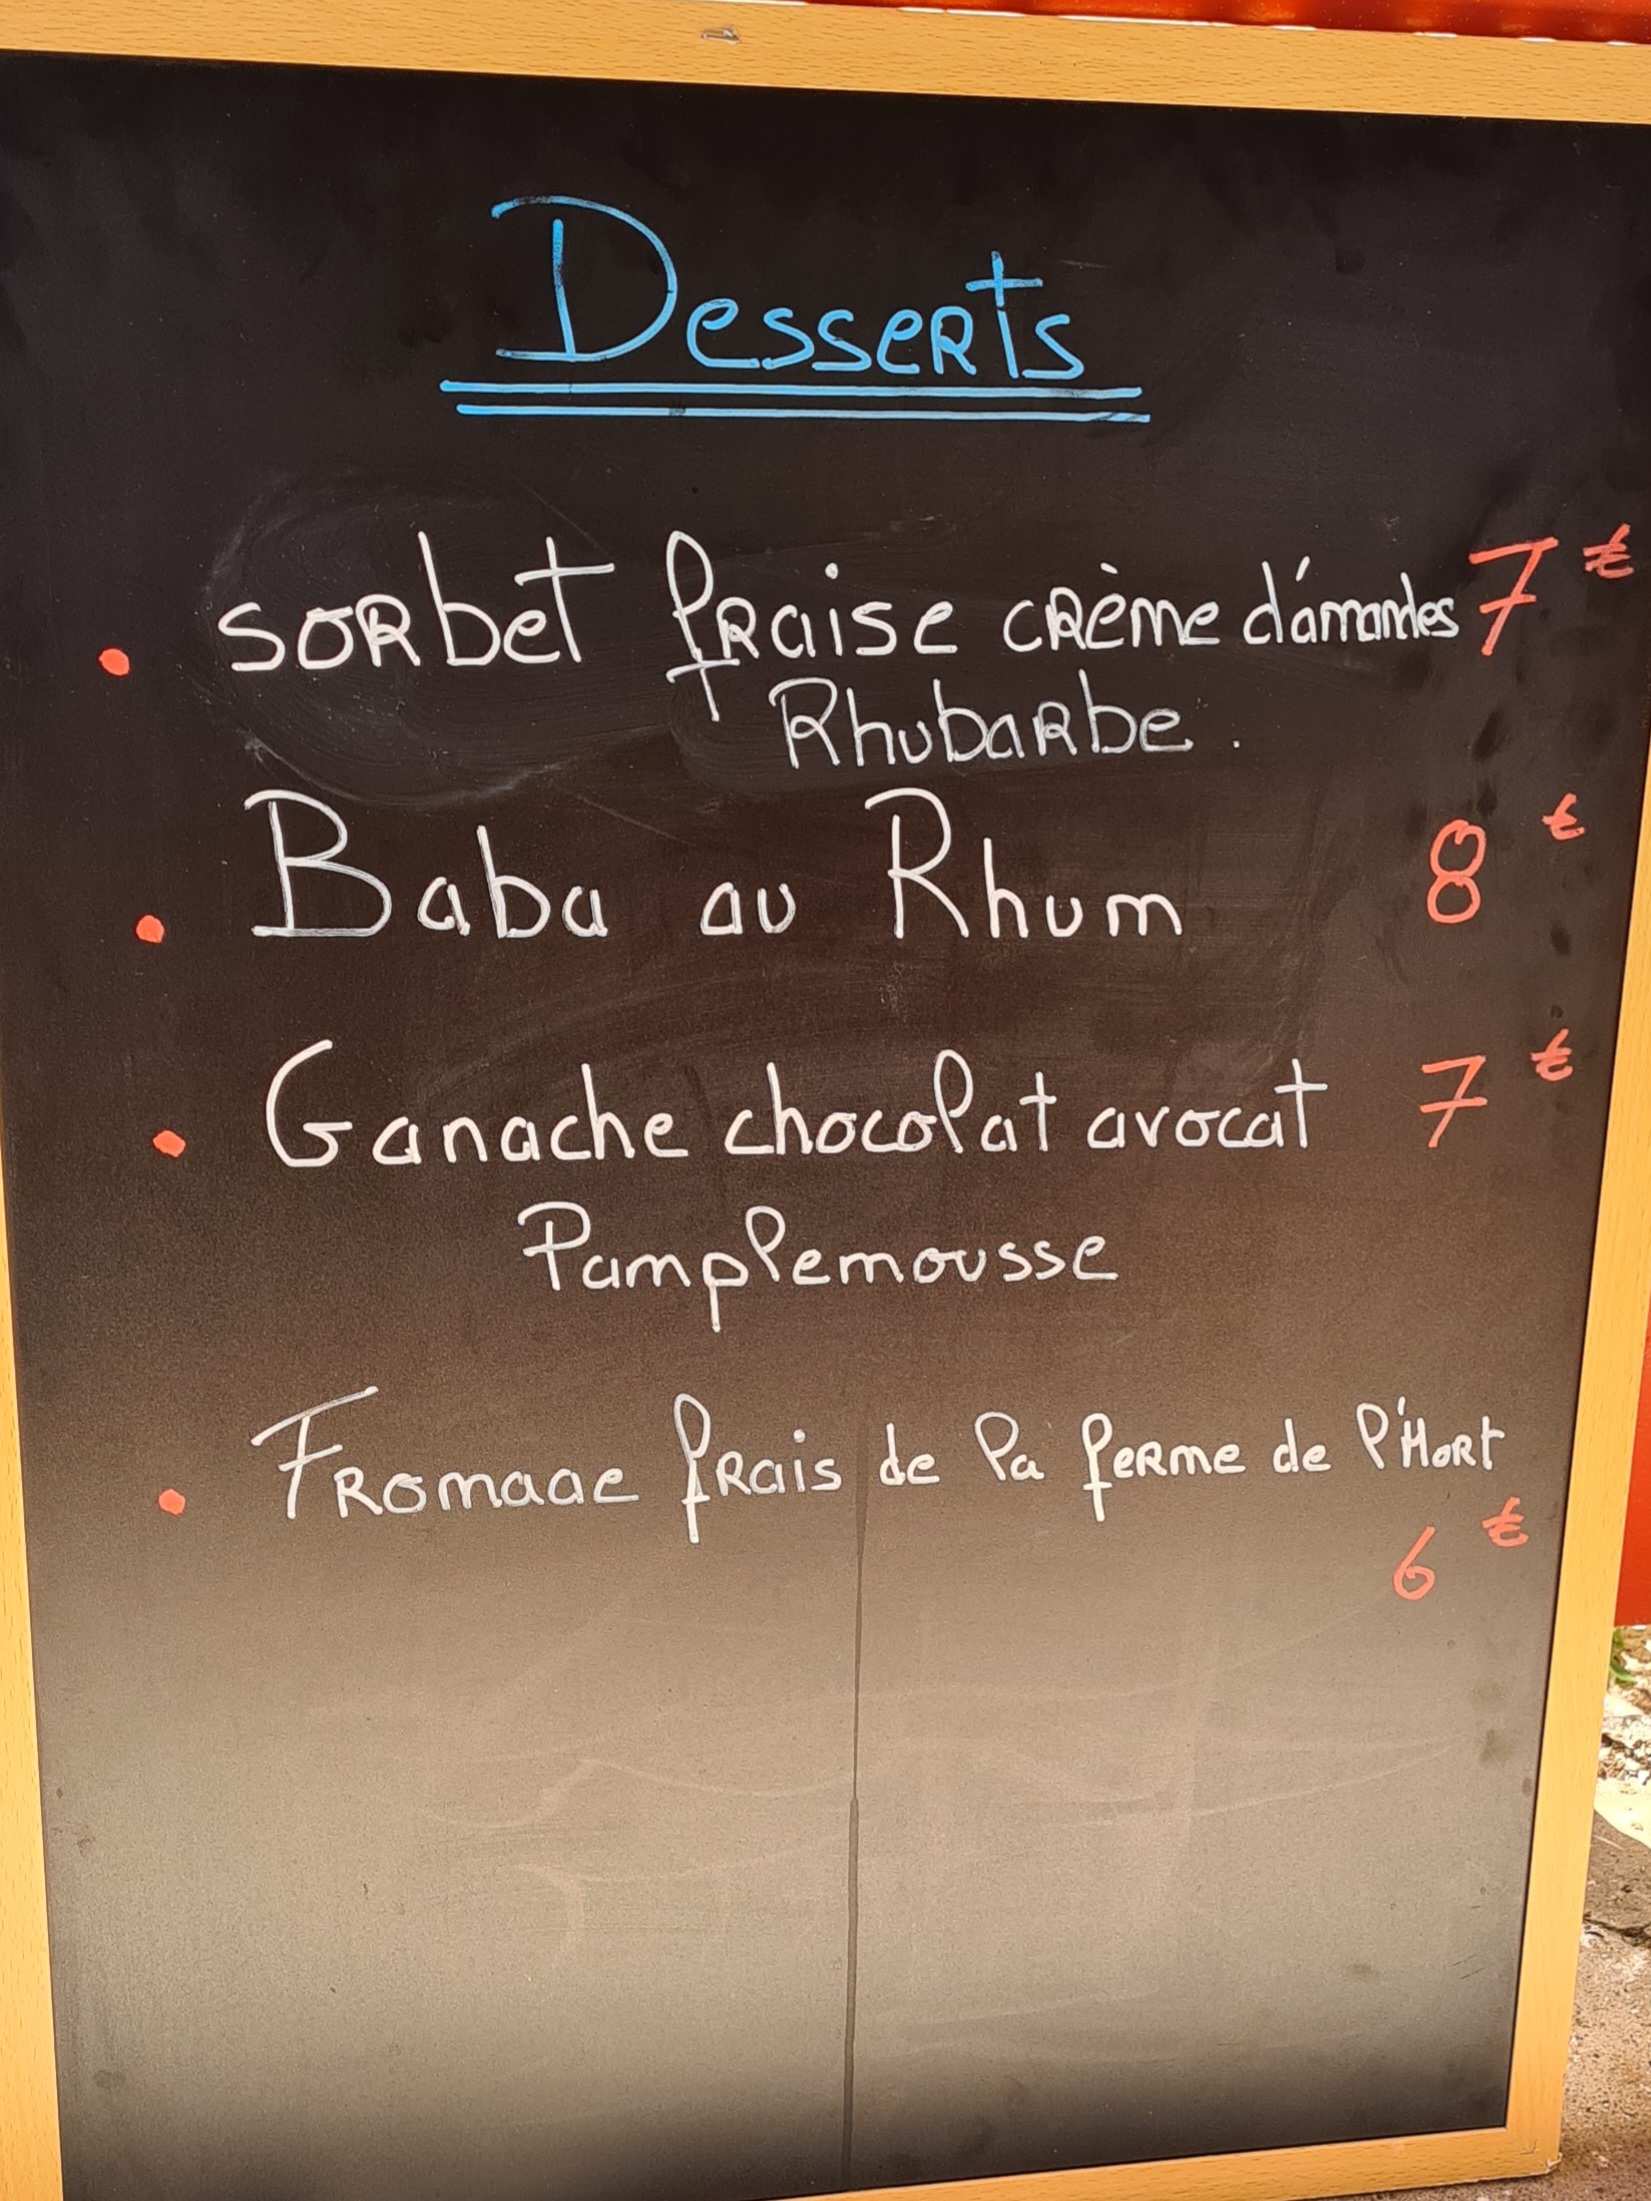 Desserts
. sorbet fraise crème d'amandes 7€
Rhubarbe.
. Baba au Rhum 8€
. Ganache chocolat avocat 7€
Pamplemousse
. Fromage frais de la ferme de l'Hort
6€